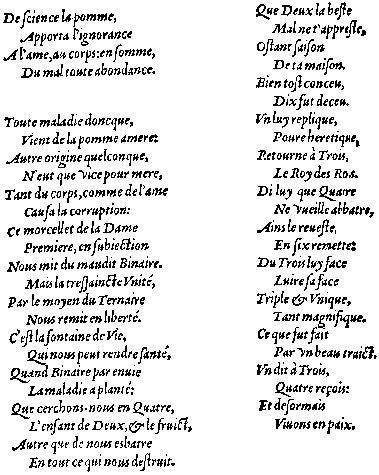 De ſcience la pomme,
Apporta l'ignorance
A l'ame, au corps: en ſomme,
Du mal toute abondance.
Toute maladie doncque,
Vient de la pomme amere:
Autre origine quelconque,
N'eut que vice pour mere,
Tant du corps, comme de l'ame
Cauſa la corruption:
Ce morcellet de la Dame
Premiere, en ſubiection
Nous mit du maudit Binaire.
Mais la treſſaincte Vnité,
Par le moyen du Ternaire
Nous remit en liberté.
C'eſt la fontaine de Vie,
Qui nous peut rendre ſanté,
Quand Binaire par enuie
La maladie a planté:
Que cerchons-nous en Quatre,
L'enfant de Deux, & le fruict,
Autre que de nous esbatre
En tout ce qui nous deſtruit.
Que Deux la beſte
Mal ne t'appreſte,
Oſtant ſaiſon
De ta maiſon.
Bien toſt conceu,
Dix fut deceu.
Vn luy replique,
Poure heretique,
Retourne à Trois,
Le Roy des Rois.
Di luy que Quatre
Ne vueille abbatre,
Ains le reueſte,
En ſix remette:
Du Trois luy face
Luire ſa face
Triple & Vnique,
Tant magnifique.
Ce que fut fait
Par vn beau traict.
Vn dit à Trois,
Quatre reçois:
Et deſormais
Viuons en paix.